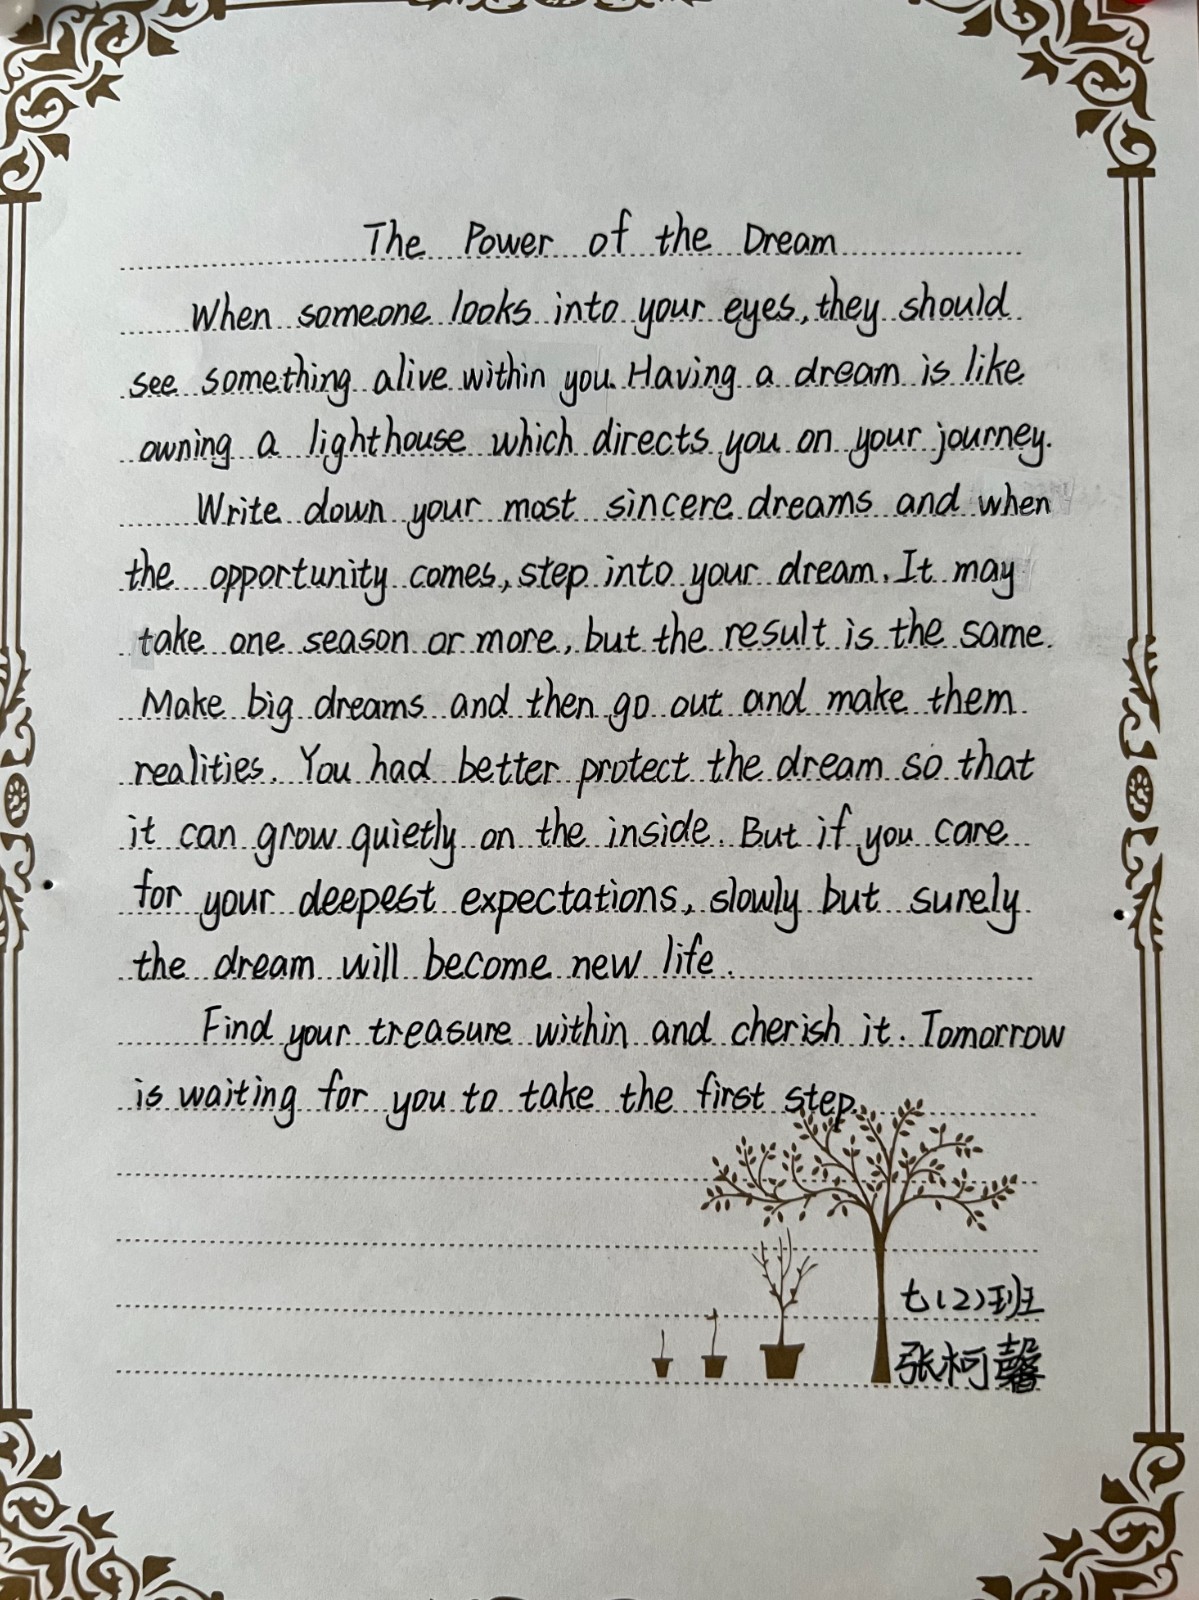 The Power of the Dream
When someone looks into your eyes, they should
see something alive within you. Having a dream is like
owning a lighthouse which directs you on your journey.
Write down your most sincere dreams and when
the opportunity comes, step into your dream. It may
take one season or more, but the result is the same.
Make big dreams and then go out and make them
realities. You had better protect the dream so that
it can grow quietly on the inside. But if you care
for your deepest expectations, slowly but surely
the dream will become new life.
Find your treasure within and cherish it. Tomorrow
is waiting for you to take the first step.
七(2)班
张柯馨